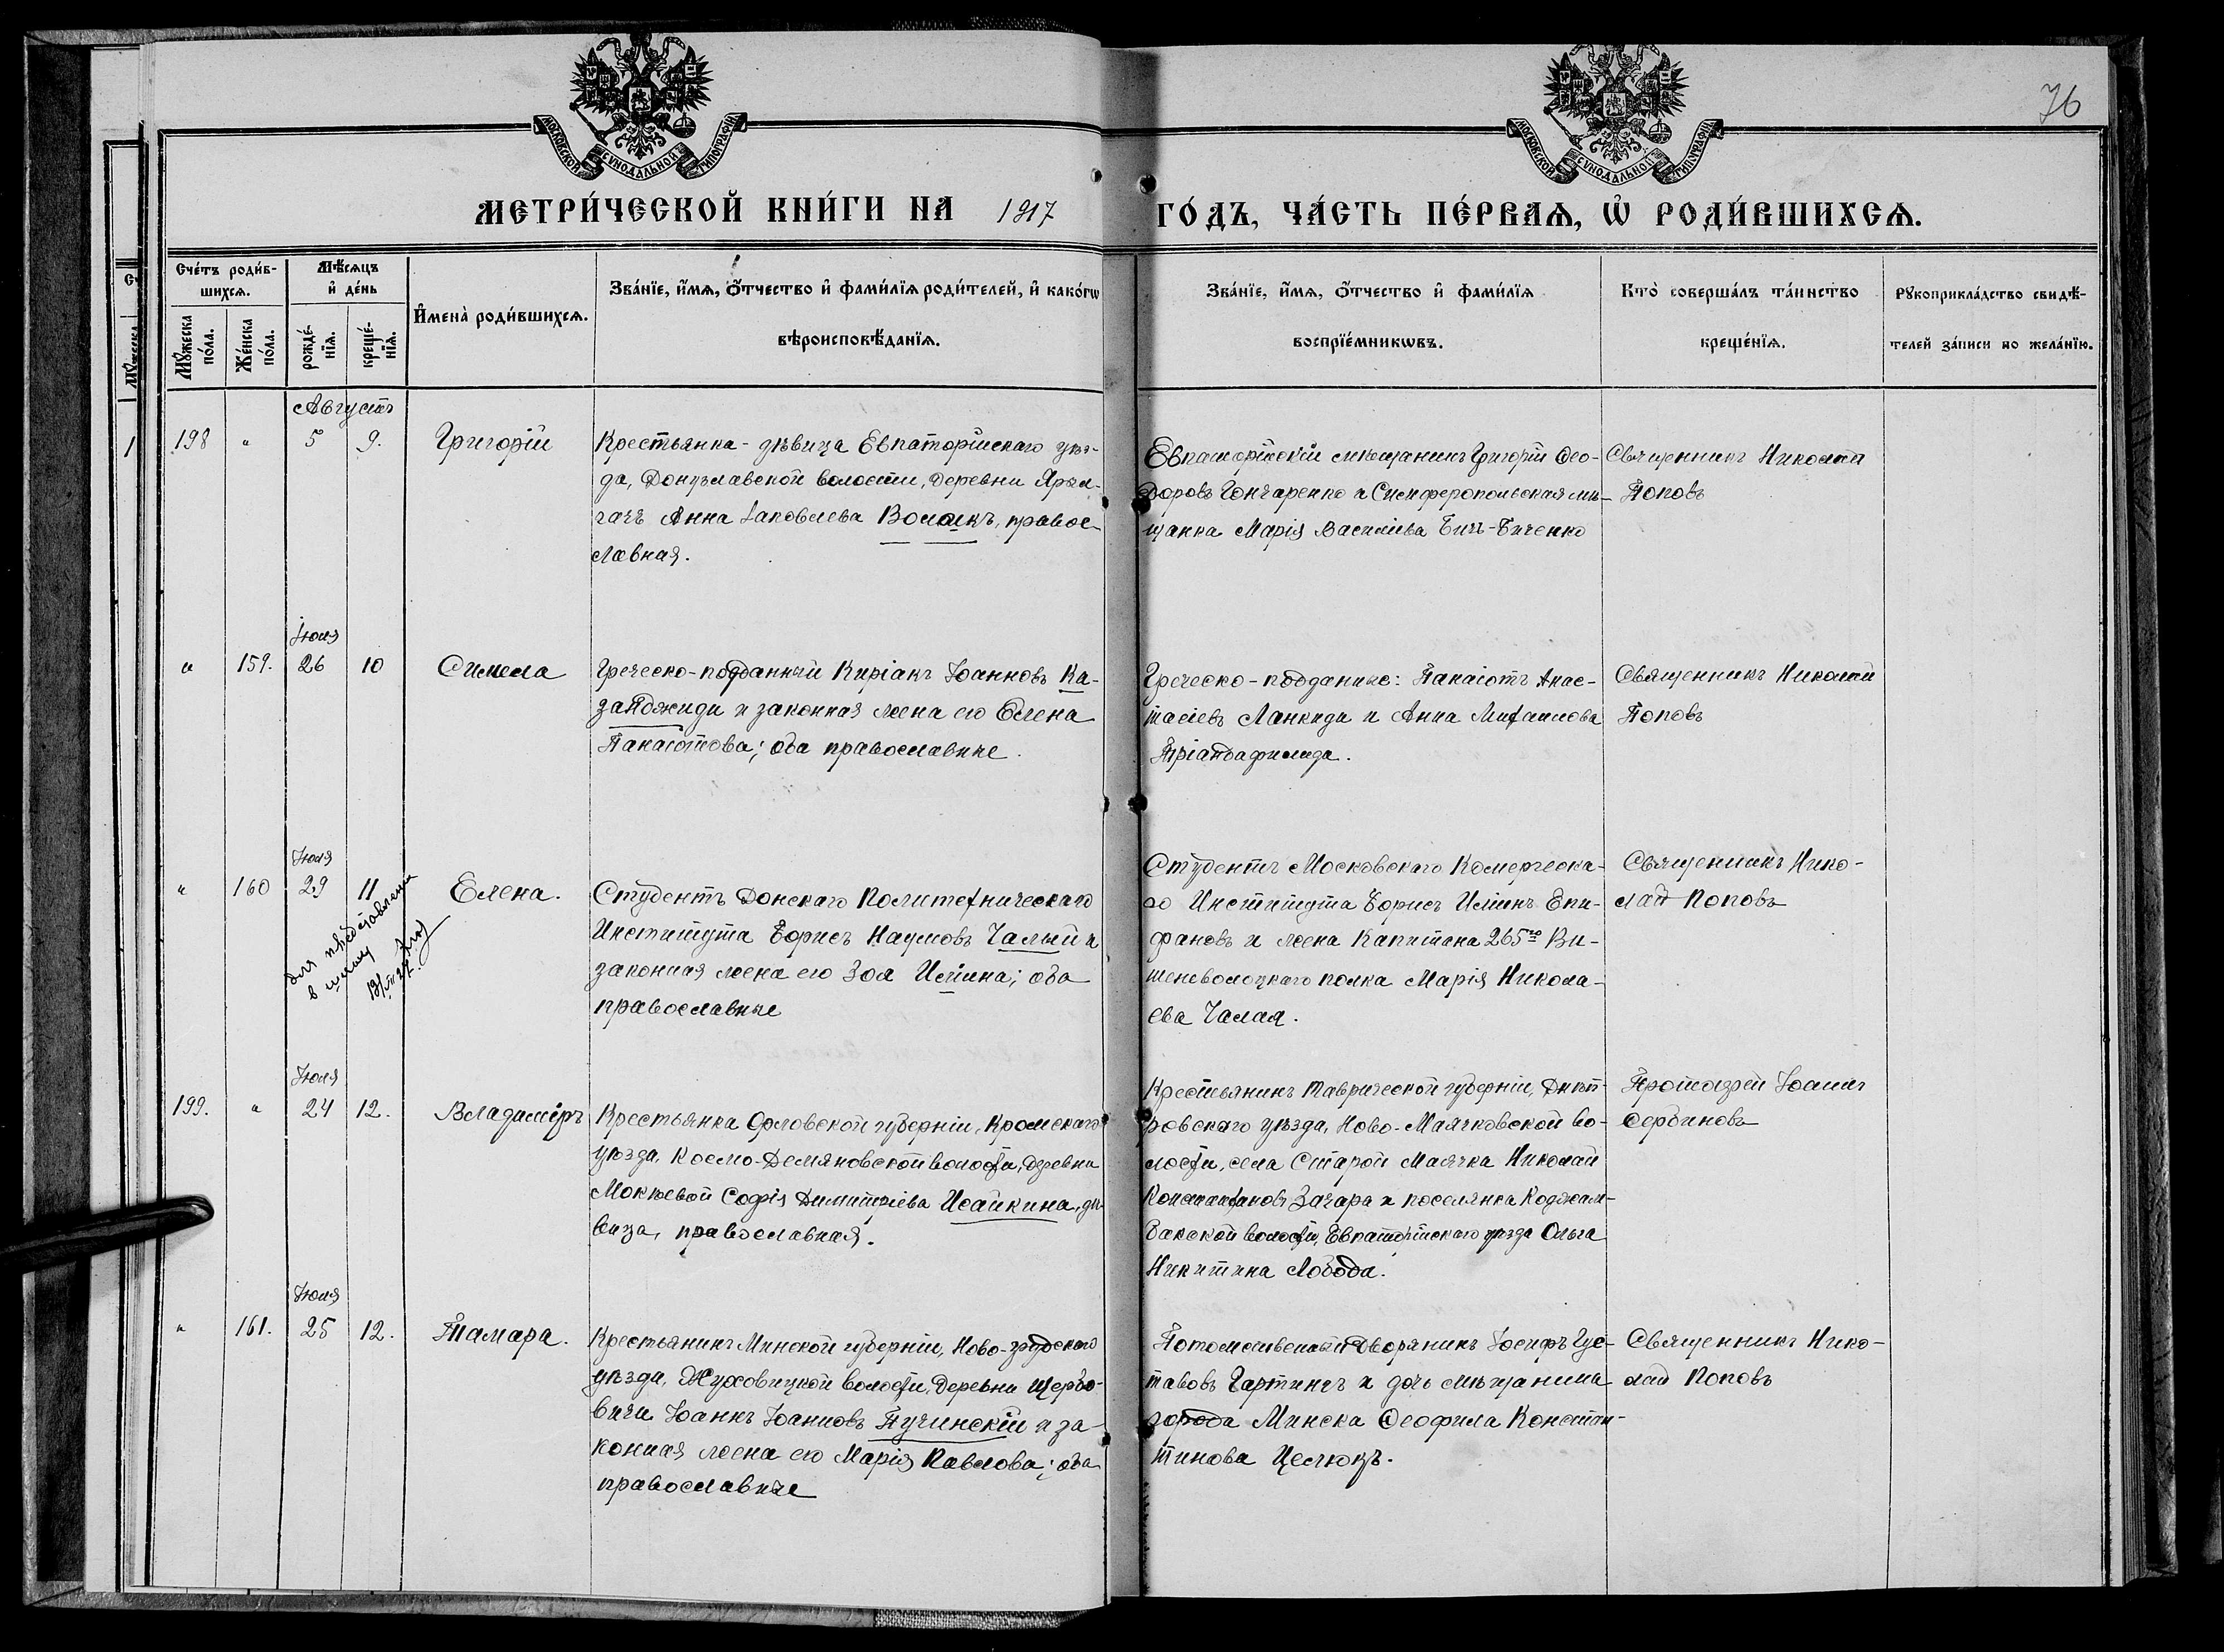 76
МОСКОВСКОЙ СѴНОДАЛЬНОЙ ТИПОГРАФІИ
МОСКОВСКОЙ СѴНОДАЛЬНОЙ ТИПОГРАФІИ
МЕТРИ́ЧЕСКОЙ КНИ́ГИ НА 1917 ГО́ДЪ, ЧА́СТЬ ПЕ́РВАѦ, Ѡ РОДИ́ВШИХСѦ.
Сче́тъ роди́в-
шихсѧ.
Мꙋ́жеска
по́ла.
Же́нска
по́ла.
Мѣ́сѧцъ
и҆ де́нь
рожде́-
нїѧ.
креще́-
нїѧ.
И҆мена̀ роди́вшихсѧ.
Зва́нїе, и҆́мѧ, ѻ҆́тчество и҆ фами́лїѧ роди́телей, и҆ како́гѡ
вѣроисповѣ́данїѧ.
Зва́нїе, и҆́мѧ, ѻ҆́тчество и҆ фами́лїѧ
воспрїе́мникѡвъ.
Кто̀ соверша́лъ та́инство
креще́нїѧ.
Рꙋкоприкла́дство свидѣ́-
телей за́писи по жела́нїю.
Августъ
198 " 5 9. Григорій
Крестьянка-дѣвица Евпаторійскаго уѣз-
да, Донузлавской волости, деревни Ярыл-
гачъ Анна Іаковлева Волошкъ, правос-
лавная.
Евпаторійскій мѣщанинъ Григорій Ѳео-
доровъ Гончаренко и Симферопольская мѣ-
щанка Марія Василіева Бичъ-Биченко
Священникъ Николай
Поповъ
Іюля
" 159. 26 10 Симела
Греческо-подданный Киріакъ Іоанновъ Ка-
занджиди и законная жена его Елена
Панаіотова; оба православные.
Греческо-подданные: Панаіотъ Анас-
тасіевъ Ланкиди и Анна Михаилова
Тріандафилиди.
Священникъ Николай
Поповъ
Іюля
" 160 29 11 Елена.
для представленія
в школу
Студентъ Донскаго Политехническаго
Института Борисъ Наумовъ Чалый и
законная жена его Зоя Иліина; оба
православные
Студентъ Московскаго Комерческа-
го Института Борисъ Иліинъ Епи-
фановъ и жена Капитана 265го Ви-
шневолоцкаго полка Марія Никола-
ева Чалая.
Священникъ Нико-
лай Поповъ
Іюля
199. " 24 12. Владиміръ
Крестьянка Орловской губерніи, Кромскаго
уѣзда, Космо-Демяновской волости, деревни
Мокѣевой Софія Димитріева Исайкина, дѣ-
вица, православная.
Крестьянинъ Таврической губерніи, Днѣп-
ровскаго уѣзда, Ново-Маячковской во-
лости, села Старой Маячка Николай
Константиновъ Зачара и поселянка Коджам-
бакской волости, Евпаторійскаго уѣзда Ольга
Никитина Лобода.
Протоіерей Іоаннъ
Сербиновъ
Іюля
" 161. 25 12. Тамара.
Крестьянинъ Минской губерніи, Ново-грудскаго
уѣзда, Жуховицкой волости, деревни Щербо-
вичи Іоаннъ Іоанновъ Пучинскій и за-
конная жена его Марія Павлова; оба
православные
Потомственный дворянинъ Іосифъ Гус-
тавовъ Гартингъ и дочь мѣщанина
города Минска Ѳеофила Констан-
тинова Целюкъ.
Священникъ Нико-
лай Поповъ